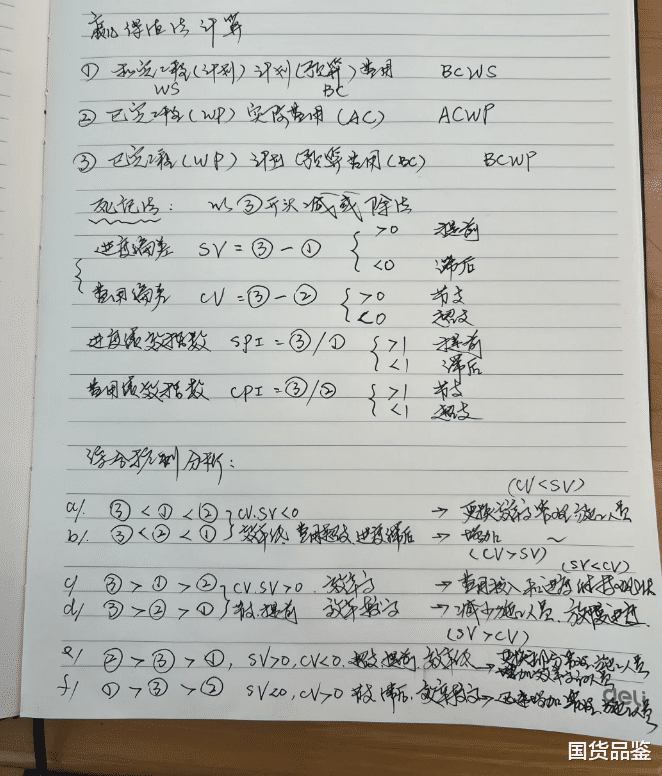 赢得值法计算
① 拟完工程(计划) 计划(预算)费用 BCWS
WS BC
② 已完工程(WP) 实际费用(AC) ACWP
③ 已完工程(WP) 计划(预算费用(BC) BCWP
死记法: 以③开头减或除法
进度偏差 SV = ③ - ① { >0 提前
<0 滞后
费用偏差 CV = ③ - ② { >0 节支
<0 超支
进度绩效指数 SPI = ③/① { >1 提前
<1 滞后
费用绩效指数 CPI = ③/② { >1 节支
<1 超支
综合控制分析:
(CV<SV)
a/. ③<①<② } CV.SV<0 → 更换效率 人员
b/. ③<②<① 效率低 费用超支 进度滞后 → 增加 ~
(CV>SV)
(SV<CV)
c/ ③>①>② } CV.SV>0. 效率高 → 费用投入和进度 持
d/. ③>②>① 节支.提前 效率较高 → 减少 人员. 放慢进度.
(SV>CV)
e/ ②>③>①, SV>0, CV<0. 超支提前, 效率低 → 人员
增加 人员
f/. ①>③>② SV<0, CV>0 节支.滞后. 效率较高 → 增加 人员
deli
国货品鉴